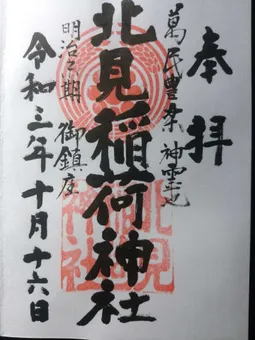 奉拝
萬民豊楽 神霊也
北見稲荷神社
明治之期 御鎮座
令和三年十月十六日
北見
神社